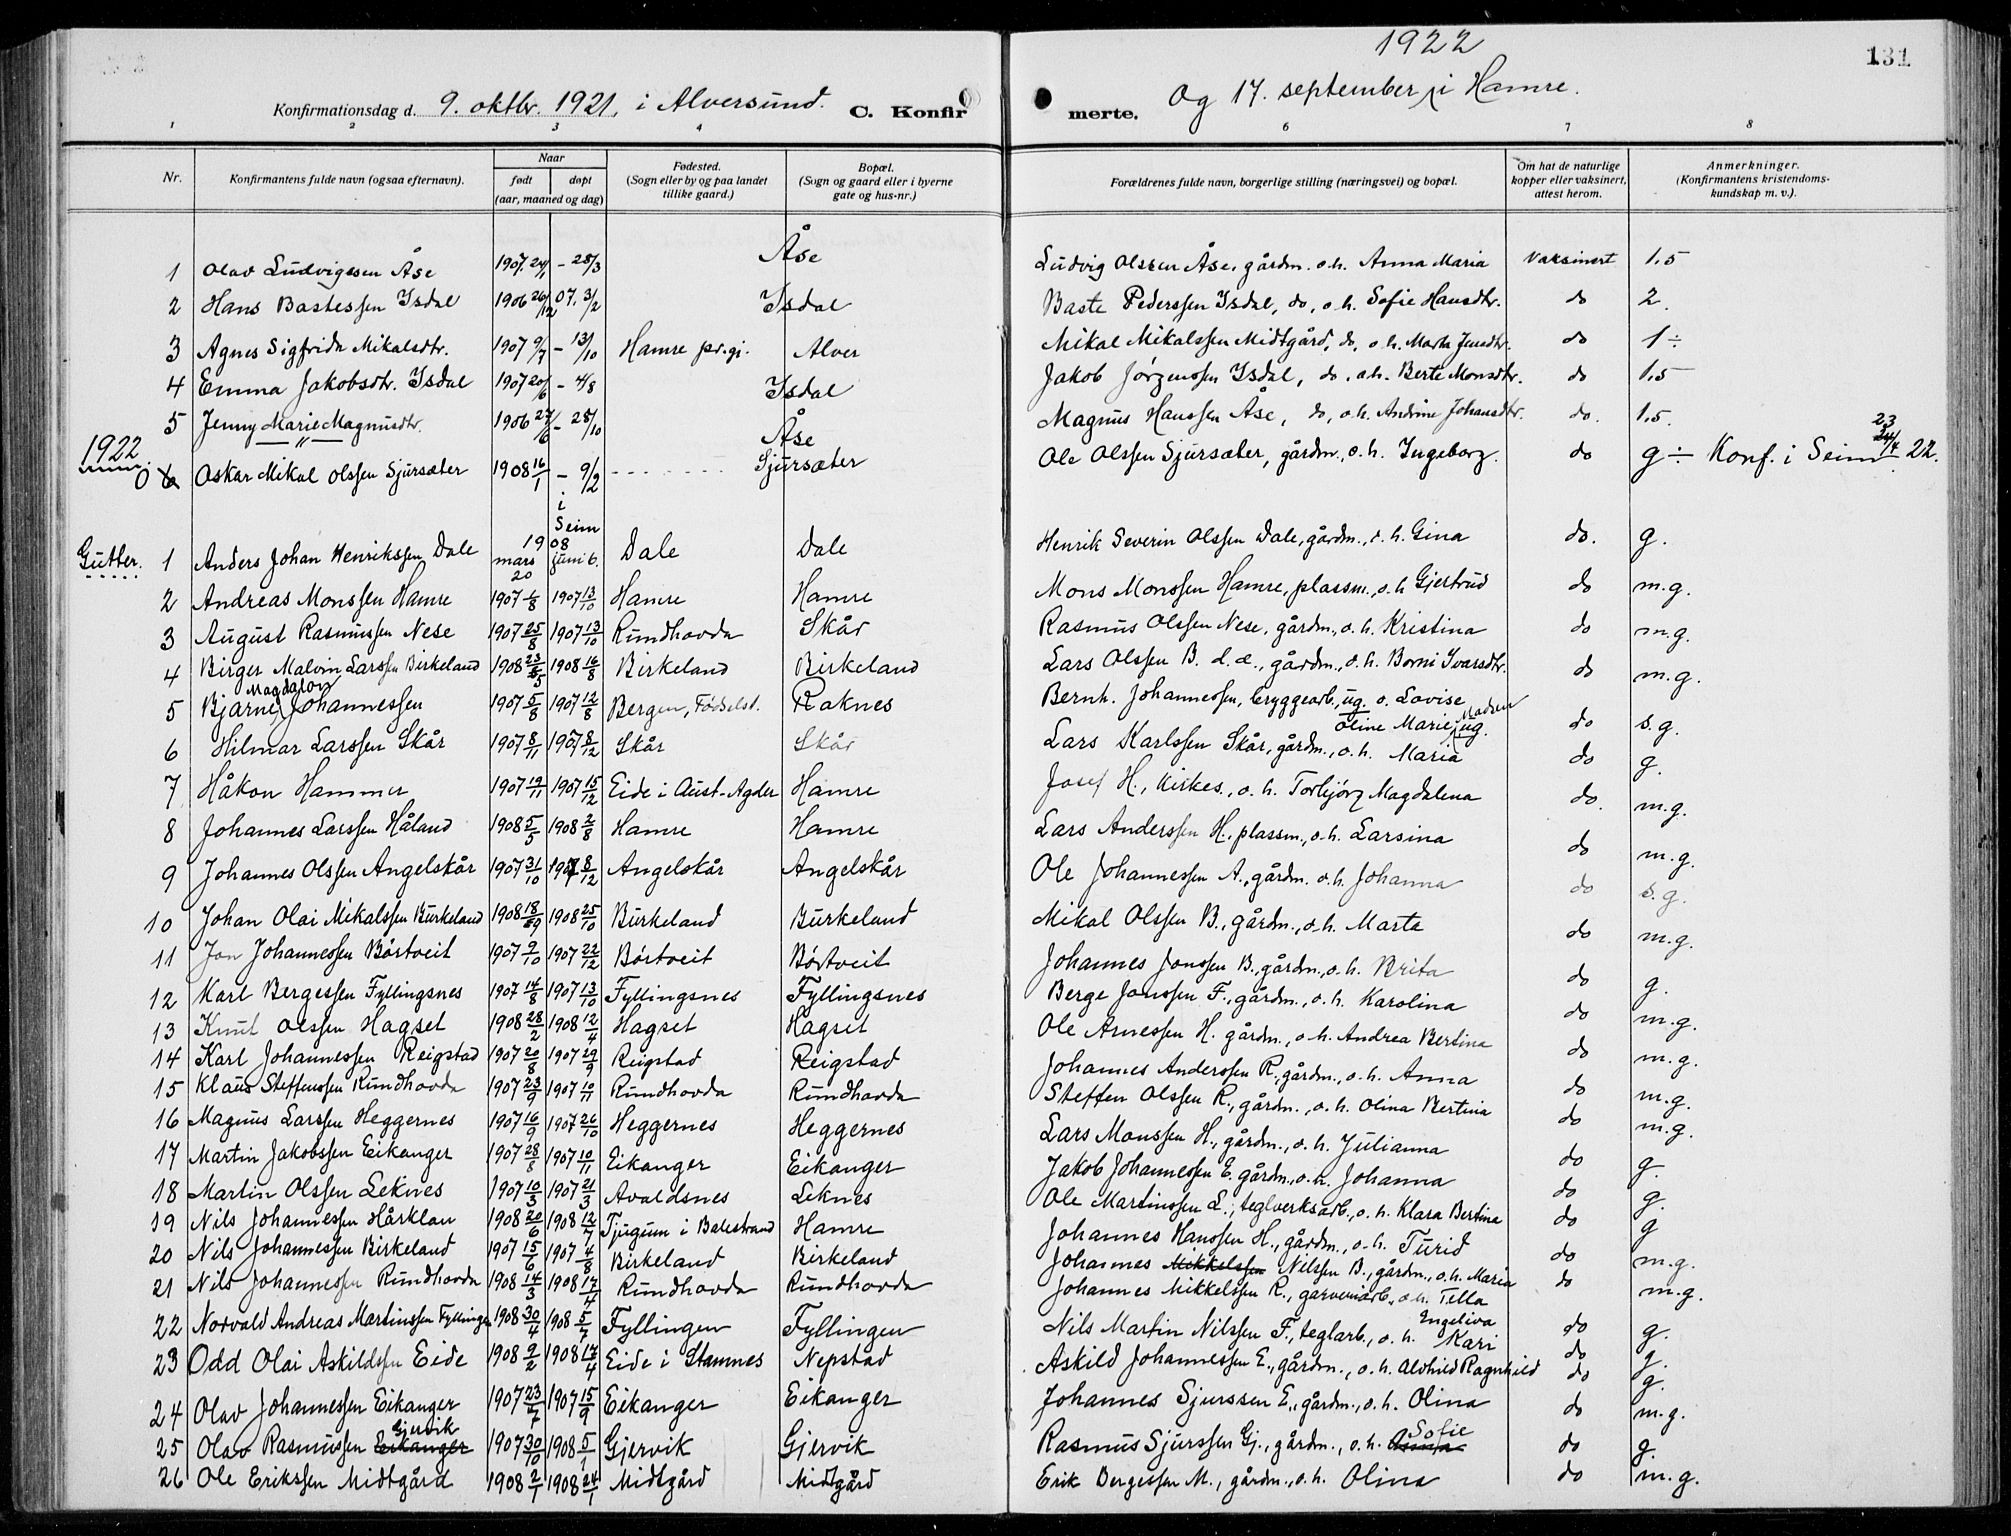 1922
131
Konfirmationsdag d. 9. oktbr. 1921, i Alversund. C. Konfirmerte. Og 17. september i Hamre.
1 2 3 4 6 7 8
Nr. Konfirmantens fulde navn (ogsaa efternavn). Naar født døpt (aar, maaned og dag) Fødested. (Sogn eller by og paa landet tillike gaard.) Bopæl. (Sogn og gaard eller i byerne gate og hus-nr.) Forældrenes fulde navn, borgerlige stilling (næringsvei) og bopæl. Om hat de naturlige kopper eller vaksinert, attest herom. Anmerkninger. (Konfirmantens kristendoms-kundskap m. v.).
1 Olav Ludvigssen Åse 1907 24/1 - 28/3 Åse Ludvig Olssen Åse, gårdm. o.h. Anna Maria vaksinert 1.5
2 Hans Bastessen Isdal 1906 26/12 07. 3/2 Isdal Baste Pederssen Isdal, do, o.h. Sofie Hansdtr. do 2.
3 Agnes Sigfrida Mikalsdtr. 1907 9/7 - 13/10 Hamre pr.gj. Alver Mikal Mikalssen Midtgård, do, o.h. Marta do 1÷
4 Emma Jakobsdtr. Isdal 1907 20/6 - 4/8 Isdal Jakob Jørgenssen Isdal, do. o.h. Berte Monsdtr. do 1.5
5 Jenny Marie Magnusdtr. 1906 27/6 - 28/10 Åse Magnus Hanssen Åse, do, o.h. Andrine Johansdtr. do. 1.5.
1922
0 6 Oskar Mikal Olssen Sjursæter 1908 16/1 - 9/2 i Seim Sjursæter Ole Olssen Sjursæter, gårdm., o.h. Ingeborg. do g÷ Konf. i Seim 23/4 22.
Gutter. 1 Anders Johan Henrikssen Dale 1908 mars 20 juni 6. Dale Dale Henrik Severin Olssen Dale, gårdm., o.h. Gina do. g.
2 Andreas Monssen Hamre 1907 1/8 1907 13/10 Hamre Hamre Mons Monssen Hamre, plassm., o.h Gjertrud do m.g.
3 August Rasmussen Nese 1907 25/8 1907 13/10 Rundhovda Skår Rasmus Olssen Nese, gårdm., o.h. Kristina do m.g.
4 Birger Malvin Larssen Birkeland 1908 23/5 1908 16/8 Birkeland Birkeland Lars Olssen B. d.e., gårdm., o.h. Borni Ivarsdtr. do m.g.
5 Bjarne Magdalon Johannessen 1907 5/8 1907 12/8 Bergen, Fødselst. Raknes Bernh. Johannessen, bryggearb., ug. o. Lovise Oline Marie Madsen ug. do s.g.
6 Hilmar Larssen Skår 1907 8/11 1907 8/12 Skår Skår Lars Karlssen Skår, gårdm., o.h. Maria do g.
7 Håkon Hammer 1907 19/11 1907 15/12 Eide i Aust-Agder Hamre Josef H., kirkes., o.h. Torbjørg Magdalena do. m.g.
8 Johannes Larssen Håland 1908 5/5 1908 2/8 Hamre Hamre Lars Anderssen H., plassm., o.h. Larsina do m.g.
9 Johannes Olssen Angelskår 1907 31/10 1907 8/12 Angelskår Angelskår Ole Johannessen A., gårdm. o.h. Johanna do s.g.
10 Johan Olai Mikalssen Burkeland 1908 18/9 1908 25/10 Burkeland Burkeland Mikal Olssen B., gårdm., o.h. Marta do m.g.
11 Jon Johannessen Børtveit 1907 9/10 1907 22/12 Børtveit Børtveit Johannes Jonssen B., gårdm., o.h. Brita do g.
12 Karl Bergessen Fyllingsnes 1907 14/8 1907 13/10 Fyllingsnes Fyllingsnes Berge Jonssen F., gårdm., o.h. Karolina do m.g.
13 Knut Olssen Hagset 1908 28/2 1908 12/4 Hagset Hagset Ole Arnessen H. gårdm., o.h. Andrea Bertina do m.g.
14 Karl Johannessen Reigstad 1907 20/8 1907 29/9 Reigstad Reigstad Johannes Anderssen R., gårdm., o.h. Anna do m.g.
15 Klaus Steffenssen Rundhovda 1907 23/9 1907 10/11 Rundhovda Rundhovda Steffen Olssen R., gårdm., o.h. Olina Bertina do m.g.
16 Magnus Larssen Heggernes 1907 16/9 1907 26/10 Heggernes Heggernes Lars Monssen H., gårdm., o.h. Julianna do g.
17 Martin Jakobssen Eikanger 1907 28/8 1907 10/11 Eikanger Eikanger Jakob Johannessen E. gårdm., o.h. Johanna do g.
18 Martin Olssen Leknes 1907 10/3 1907 21/3 Avaldsnes Leknes Ole Martinssen L., teglverksarb., o.h. Klara Bertina do g
19 Nils Johannessen Hårklau 1908 20/6 1908 12/7 Tjugum i Balestrand Hamre Johannes Hanssen H., gårdm., o.h. Turid do m.g.
20 Nils Johannessen Birkeland 1907 15/6 1907 4/8 Birkeland Birkeland Johannes Mikkelssen Nilssen B., gårdm., o.h. Maria do m.g.
21 Nils Johannessen Rundhovda 1908 14/3 1908 17/4 Rundhovda Rundhovda Johannes Mikkelssen R., garveriarb., o.h. Tella
22 Norvald Andreas Martinssen Fyllingen 1908 30/4 1908 5/7 Fyllingen Fyllingen Nils Martin Nilssen F., teglarb., o.h. Engeliva Kari do g.
23 Odd Olai Askildssen Eide 1908 9/2 1908 17/4 Eide i Stamnes Nepstad Askild Johannessen E., gårdm., o.h. Alvhild Ragnhild do g.
do g.
24 Olav Johannessen Eikanger 1907 23/7 1907 15/9 Eikanger Eikanger Johannes Sjurssen E., gårdm., o.h. Olina do m.g.
25 Olav Rasmussen Eikanger Gjervik 1907 30/10 1908 5/1 Gjervik Gjervik Rasmus Sjurssen Gj., gårdm., o.h. Anna Sofie do g.
26 Ole Erikssen Midtgård 1908 2/1 1908 24/1 Midtgård Midtgård Erik Bergessen M., gårdm., o.h. Olina do m.g.